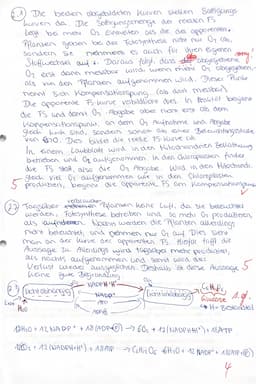 2.1 Die beiden abgebildeten Kurven stellen Sättigungs-
kurven da. Die Sättigungsmenge der reellen FS
liegt bei mehr O₂ Einheiten als die der apparenten.
Pflanzen geben bei der Fotosynthese nicht nur O₂ ab,
sondern Sie auch für ihren eigenen
Stoffwechsel auf. Daraus folgt, dass abgegebener
O₂ erst dann messbar wird wenn mehr O₂ abgegeben
als von den Pflanzen aufgenommen wird. Dieser Punkt
nennt sich Kompensationspunkt. (ab dann messbar)
Die apparente FS Kurve
die FS und damit O₂ Abgabe aber nicht erst ab dem
Kompensationspunkt, an dem O₂ Aufnahme und Abgabe
gleich sind, sondern schon ab einer Beleuchtungsstärke
von Dies bildet die reelle FS Kurve ab.
In einem Laubblatt wird in den Mitochondrien Zellatmung
betrieben und O₂ aufgenommen, in den Chloroplasten findet
die FS statt, also die O₂ Abgabe. Wird in den Mitochond.
gleich viel O₂ aufgenommen wie in den Chloroplasten
5 produziert, beginnt die apparente FS am Kompensationspunkt
2.2 Tagsüber verbrauchen Pflanzen keine Luft, da sie beleuchtet
werden, Fotosynthese betreiben und so mehr O₂ produzieren,
als aufnehmen. Nachts werden die Pflanzen allerdings
nicht beleuchtet, und nehmen nur O₂ auf. Dies sieht
man an der Kurve der apparenten FS. Hierfür trifft die
Aussage zu. Allerdings wird tagsüber mehr produziert,
als nachts aufgenommen und somit wird der
Verlust wieder ausgeglichen. Deshalb ist diese Aussage 5
keine gute Begründung.
2.3
O₂ NADPH+H⁺ CO₂ C₆H₁₂O₆
Licht lichtabhängig NADP⁺ lichtunabhängig Glucose
H₂O ATP
ADP+P
12H₂O + 12 NADP⁺ + 18(ADP+P) → 6O₂ + 12(NADPH+H⁺) + 18ATP
6CO₂ + 12(NADPH+H⁺) + 18ATP → C₆H₁₂O₆ + 6H₂O + 12 NADP⁺ + 18(ADP+P)
4